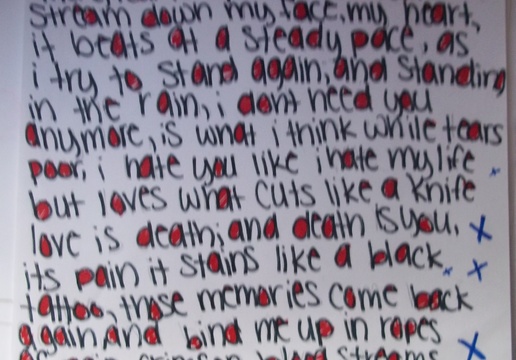 stream down my face, my heart,
it beats at a steady pace, as
i try to stand again, and standing
in the rain, i dont need you
anymore, is what i think while tears
poor, i hate you like i hate my life
but loves what cuts like a knife
love is death, and death is you,
its pain it stains like a black
tattoo, those memories come back
again, and bind me up in ropes
blood stream